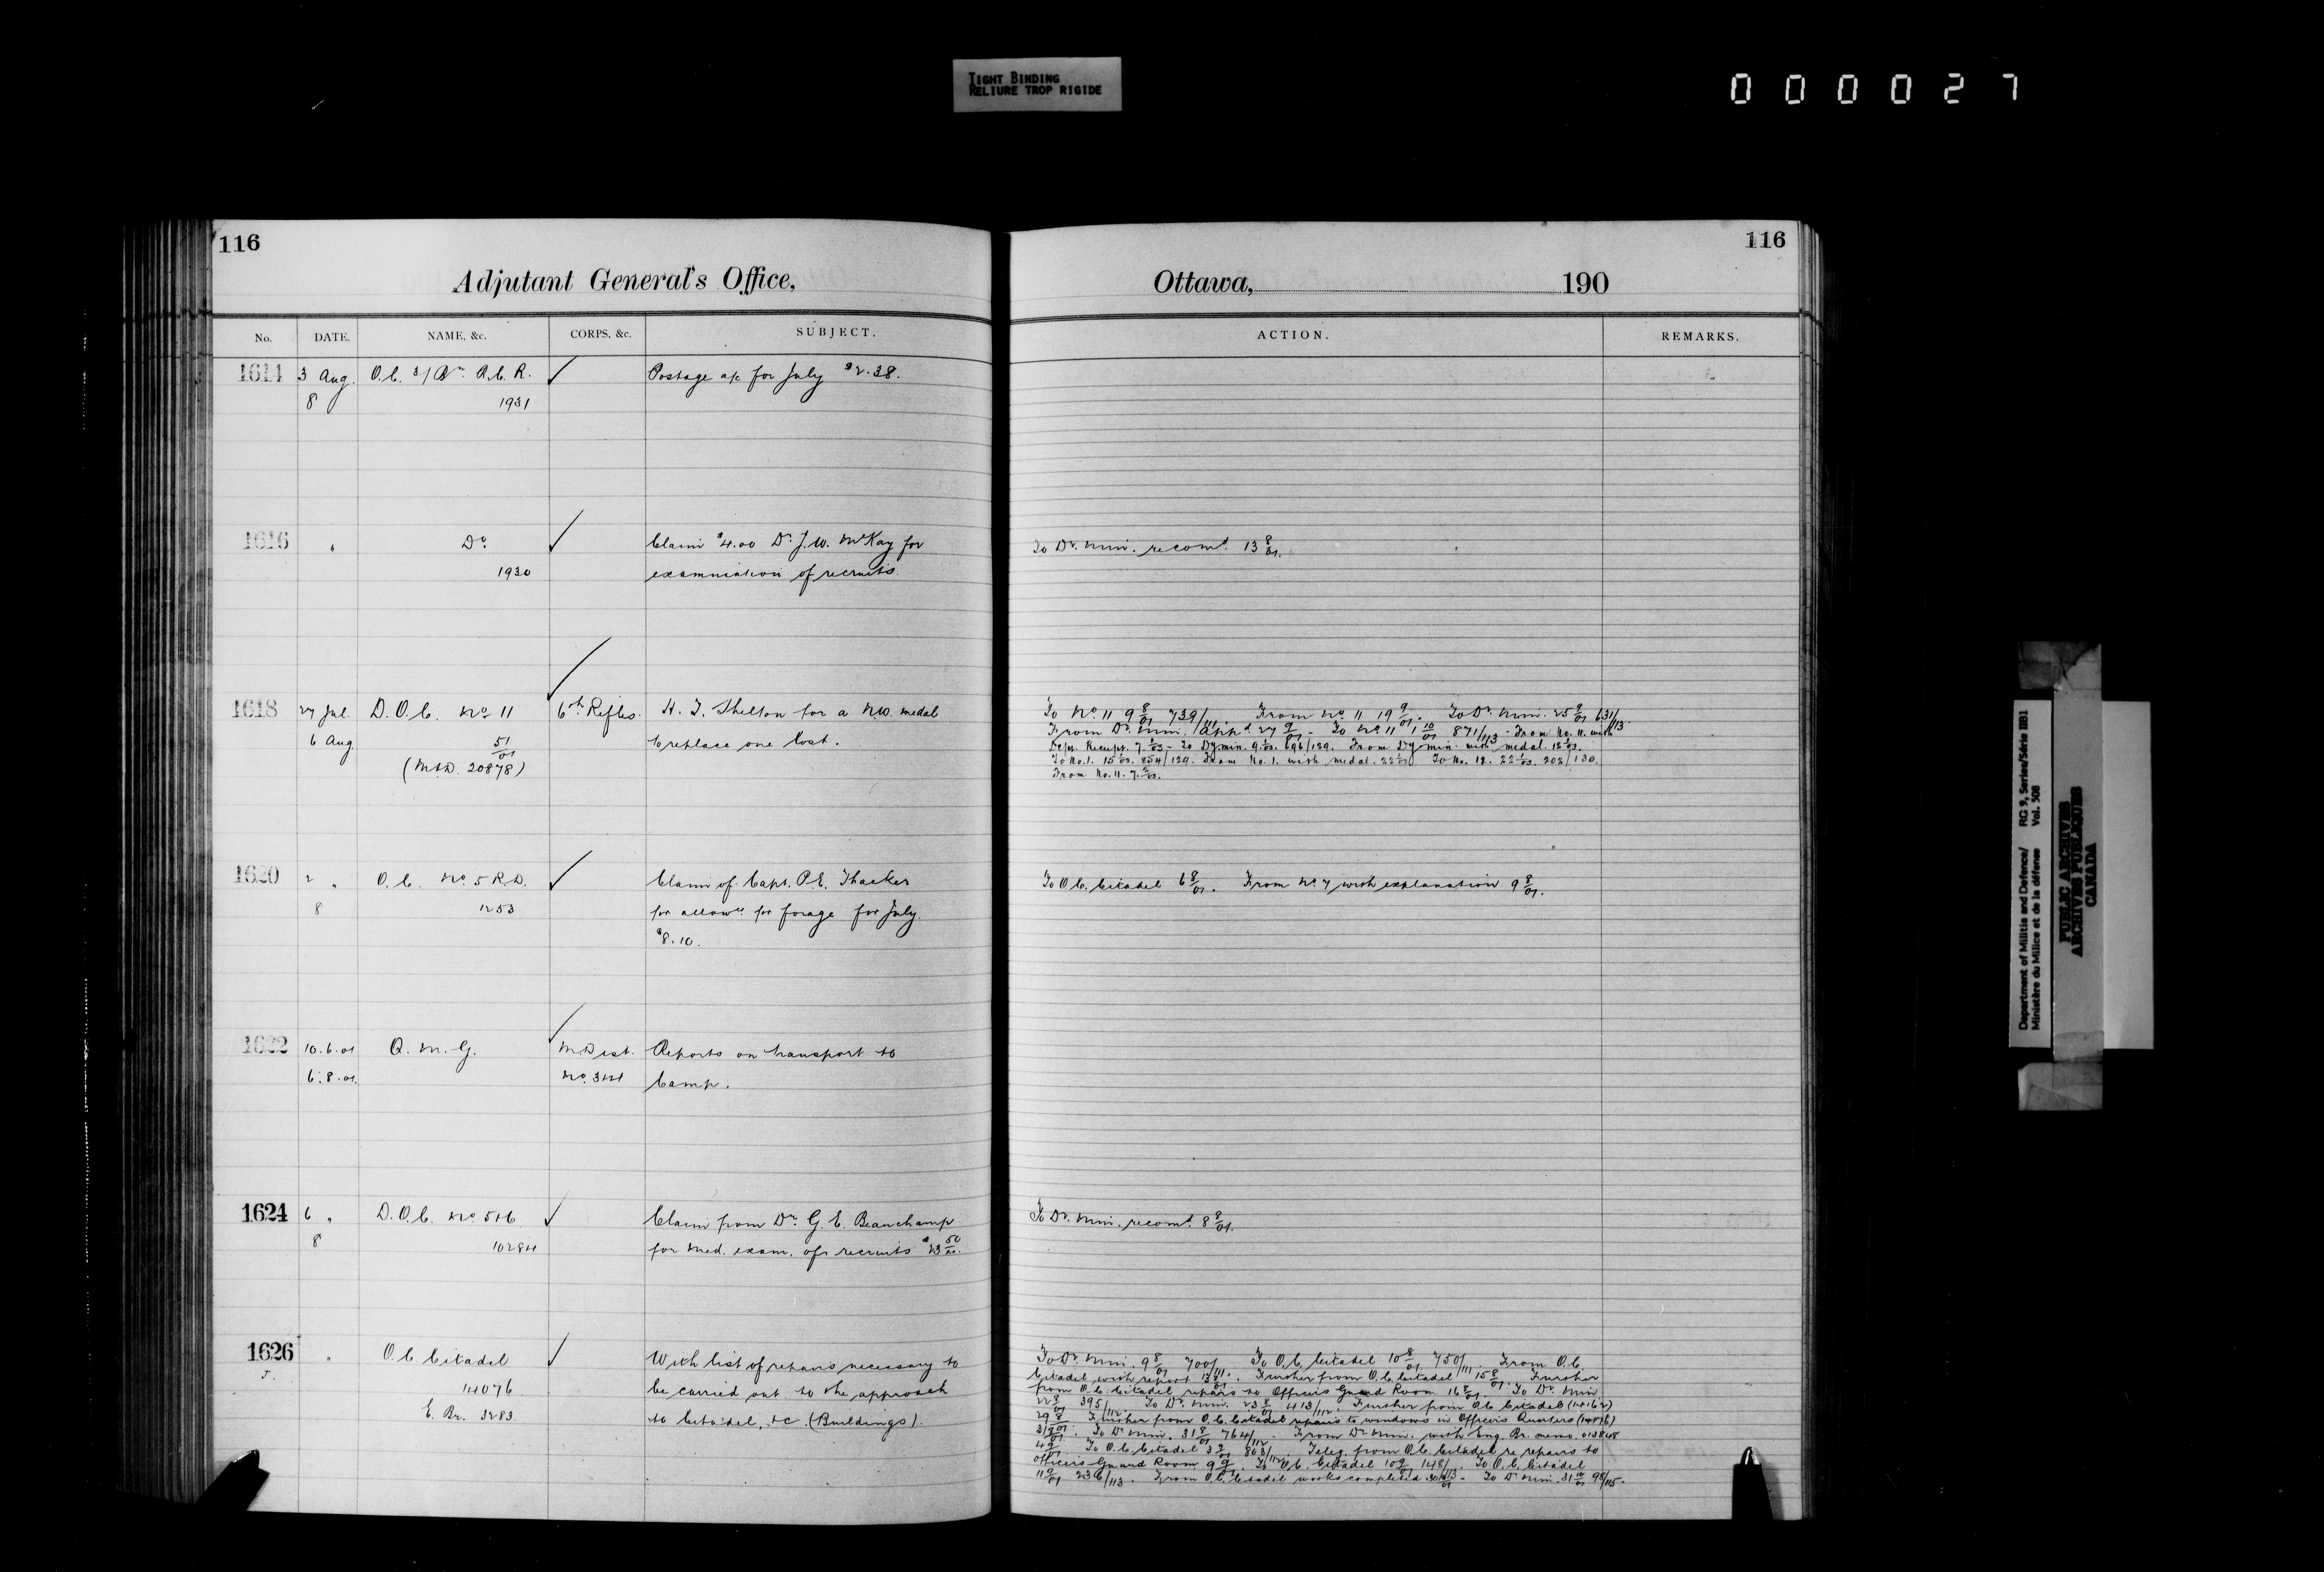 TIGHT BINDING
RELIURE TROP RIGIDE
000027
116
Adjutant General's Office,
No. DATE. NAME, &c. CORPS, &c. SUBJECT.
1614 3 Aug. O.C. R.C.R. Postage a/c for July $2.38.
8 1931
1616 " Do. Claim $4.00 Dr. J.W. McKay for
1930 examination of recruits.
1618 27 Jul. D.O.C. No. 11 6th Rifles. H. J. Shelton for a N.W. medal
6 Aug. 51/01 to replace one lost.
(M&D. 20878)
1620 2 " O.C. No. 5 R.D. Claim of Capt. P.E. Thacker
8 1253 for allowce for forage for July.
$8.10.
1622 10.6.01 Q.M.G. M.Dist. Reports on transport to
6.8.01. No. 3&4 Camp.
1624 6 " D.O.C. No. 5&6 Claim from Dr. G. E. Beauchamp
8 10284 for med. exam. of recruits $23 50/xx.
1626 " O.C. Citadel With list of repairs necessary to
14076 be carried out to the approach
E. Br. 3283. to Citadel, &c. (Buildings).
116
Ottawa, 190
ACTION. REMARKS.
To Dr. Min. recomd. 13 8/01.
To No. 11 9 8/01 739/111. From No. 11 19 9/01. To Dr. Min. 25 9/01 631/113.
From Dr. Min. appd 27 9/01 - To No. 11 1 10/01 871/113 - From No. 11. with
Receipt. 7. 1/03 - To Dy min. 9 1/03. 696/129. From Dy min. with medal. 12 1/03.
To No. 1. 15 1/03. 854/129. From No. 1. with medal. 22 1/03 To No. 12. 22 1/03. 202/130.
From No. 11. 7. 2/03.
To O.C. Citadel 6 8/01. From No. 7 with explanation 9 8/01.
To Dr. Min. recomd. 8 8/01.
To Dr. Min. 9 8/01 700/111. To O.C. Citadel 10 8/01 750/111. From O.C.
Citadel with report 13 8/01. Further from O.C. Citadel 15 8/01. Further
from O.C. Citadel repairs to Officers Guard Room 16 8/01. To Dr. Min.
22 8/01 395/112. To Dr. Min. 23 8/01 413/112. Further from O.C. Citadel (14162)
29 8/01 Further from O.C. Citadel repairs to windows in Officers Quarters (14076)
31 8/01. To Dr. Min. 31 8/01 764/112. From Dr. Min. with Eng. Br. memo. 013848
4 9/01. To O.C. Citadel 3 9/01 803/112. Teleg. from O.C. Citadel re repairs to
Officers Guard Room 9 9/01. To O.C. Citadel 10 9/01 148/113. To O.C. Citadel
11 9/01 236/113. From O.C. Citadel works completed 30 10/01 - To Dr. Min. 31 10/01 98/115.
Department of Militia and Defence/ RG 9, Series/Série IIB1
Ministère du Milice et de la défense Vol. 508
PUBLIC ARCHIVES
ARCHIVES PUBLIQUES
CANADA